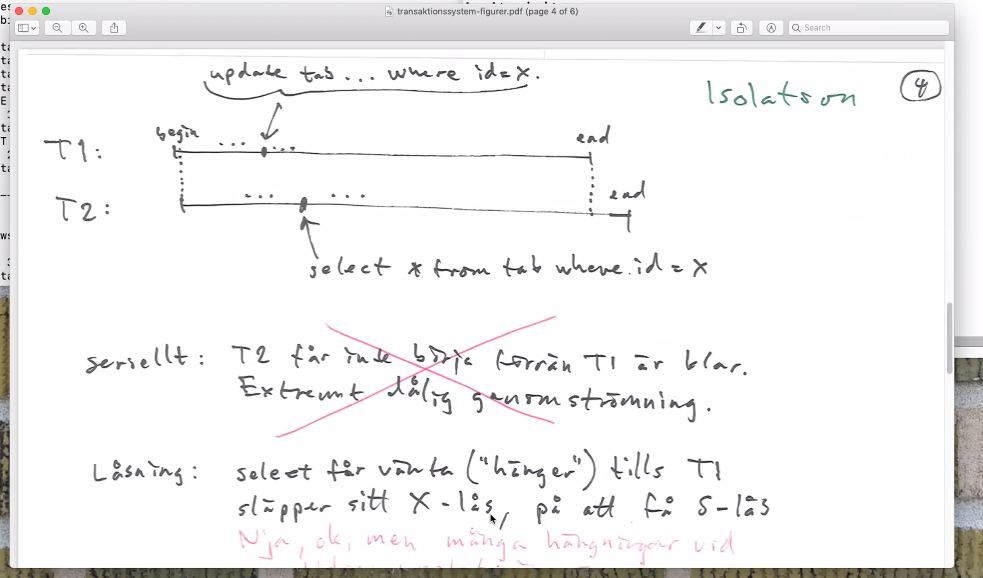 transaktionssystem-figurer.pdf (page 4 of 6)
Search
update tab ... where id=x.
Isolation
4
begin
...
...
end
T1:
T2:
...
...
end
select * from tab where id = x
seriellt: T2 får inte börja förrän T1 är klar.
Extremt dålig genomströmning.
Låsning: select får vänta ("hänger") tills T1
släpper sitt X-lås, på att få S-lås
Nja, ok, men många hängningar vid